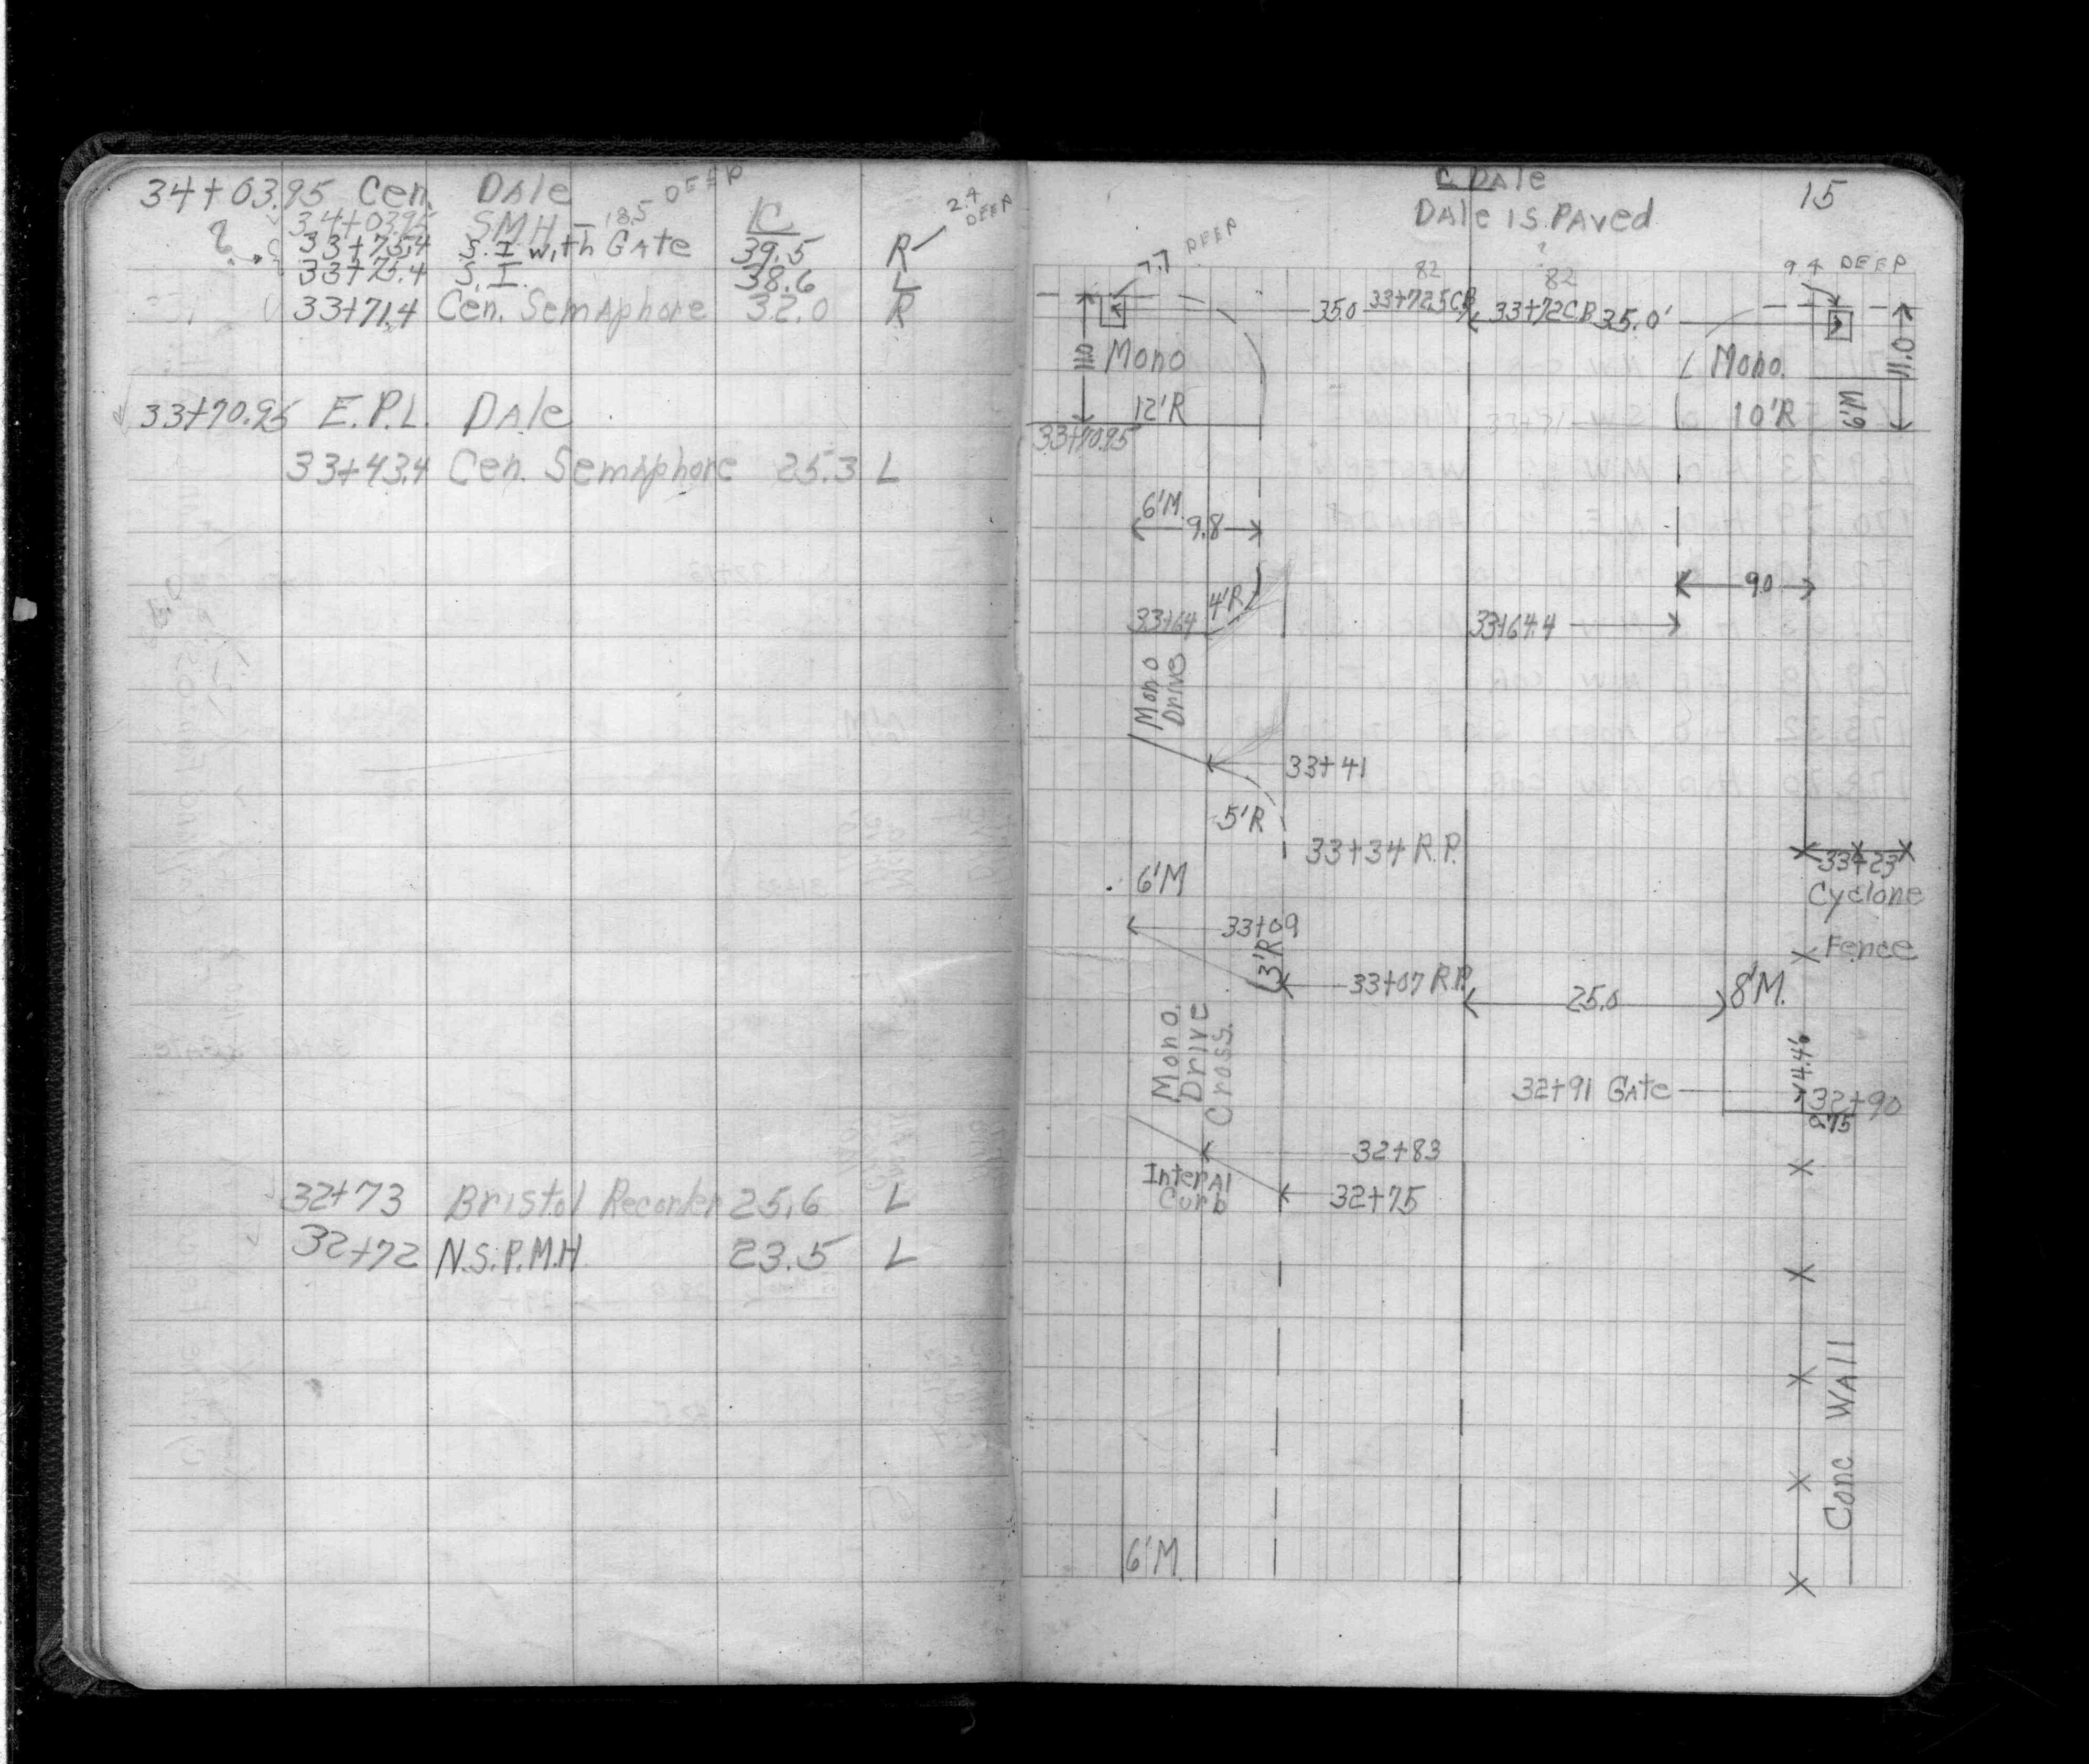 34+03.95 Cen. Dale
34+03.95 SMH - 18.5 DEEP
IC
? 33+75.4 S.I. with Gate 39.5 R 2.4 DEEP
33+75.4 S.I. 38.6 L
33+71.4 Cen. Semaphore 32.0 R
33+70.95 E.P.L. Dale
33+43.4 Cen. Semaphore 25.3 L
32+73 Bristol Recorder 25.6 L
32+72 N.S.P.M.H. 23.5 L
C Dale
15
Dale is Paved
?
7.7 DEEP
82
82
9.4 DEEP
35.0 33+72.5 CB
33+72 CB 35.0'
11.0
Mono
Mono.
11.0
12'R
10'R
6'M
33+70.95
6'M.
9.8
9.0
4'R
33+64
33+64.4
Mono
Drive
33+41
5'R
33+34 R.P.
33+23
Cyclone
Fence
6'M
33+09
3'R
33+07 R.P.
25.0
8'M.
Mono.
Drive
Cross.
14.46
32+91 Gate
32+90
.875
32+83
Interal
Curb
32+75
Conc Wall
6'M.